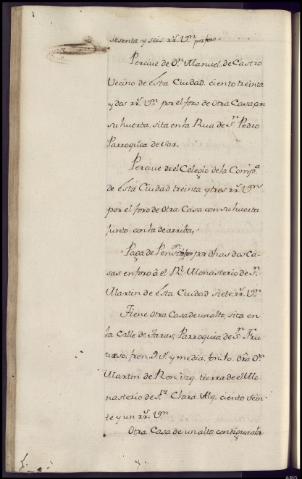 sesenta y seis rr.s V.on por foro.
Percive de D.n Manuel de Castro
Vecino de esta Ciudad, ciento treinta
y dos rr.s V.on por el foro de otra Casa con
su huerta, sita en la Rua de S.n Pedro
Parroquia de
Percive de el Colegio de la Comp.a
de esta Ciudad treinta y tres rr.s V.on
por el foro de otra Casa con su huerta
junto con la de arriba,
Paga de Pen.on por dhas dos Ca-
sas en foro à el R.l Monasterio de S.n
Martin de esta Ciudad siete rr.s V.on
Tiene otra Casa de un alto, sita en
la Calle de Parroquia de S.n Fru-
tuoso, fren.
Martin de tierra de el Mo-
nasterio de S.ta Clara, Alq. ciento vein-
te y un rr.s V.on
Otra Casa de un alto contigua a la